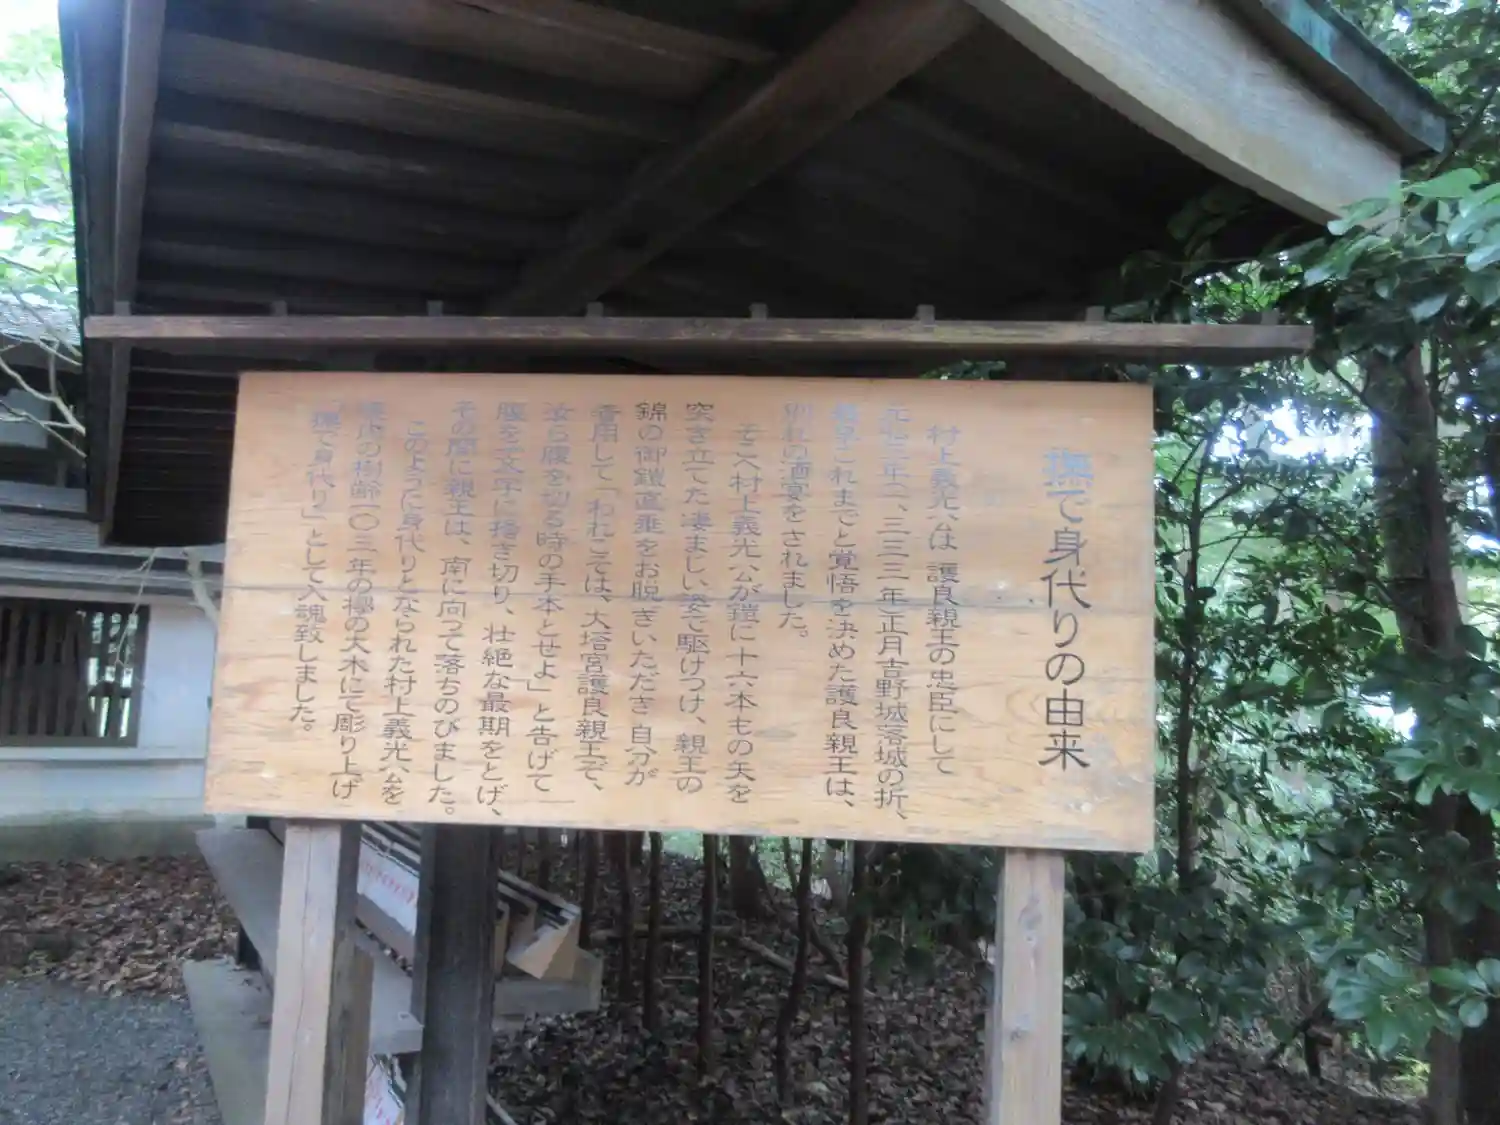 撫で身代りの由来
村上義光公は 護良親王の忠臣にして
元弘三年(一、三三三年)正月吉野城落城の折、
最早これまでと覚悟を決めた護良親王は、
別れの酒宴をされました。
そこへ村上義光公が鎧に十六本もの矢を
突き立てた凄まじい姿で駆けつけ、親王の
錦の御鎧直垂をお脱ぎいただき自分が
着用して「われこそは、大塔宮護良親王で、
汝ら腹を切る時の手本とせよ」と告げて
腹を十文字に掻き切り、壮絶な最期をとげ、
その間に親王は、南に向って落ちのびました。
このように身代りとなられた村上義光公を
境内の樹齢一〇三年の欅の大木にて彫り上げ
「撫で身代り」として入魂致しました。